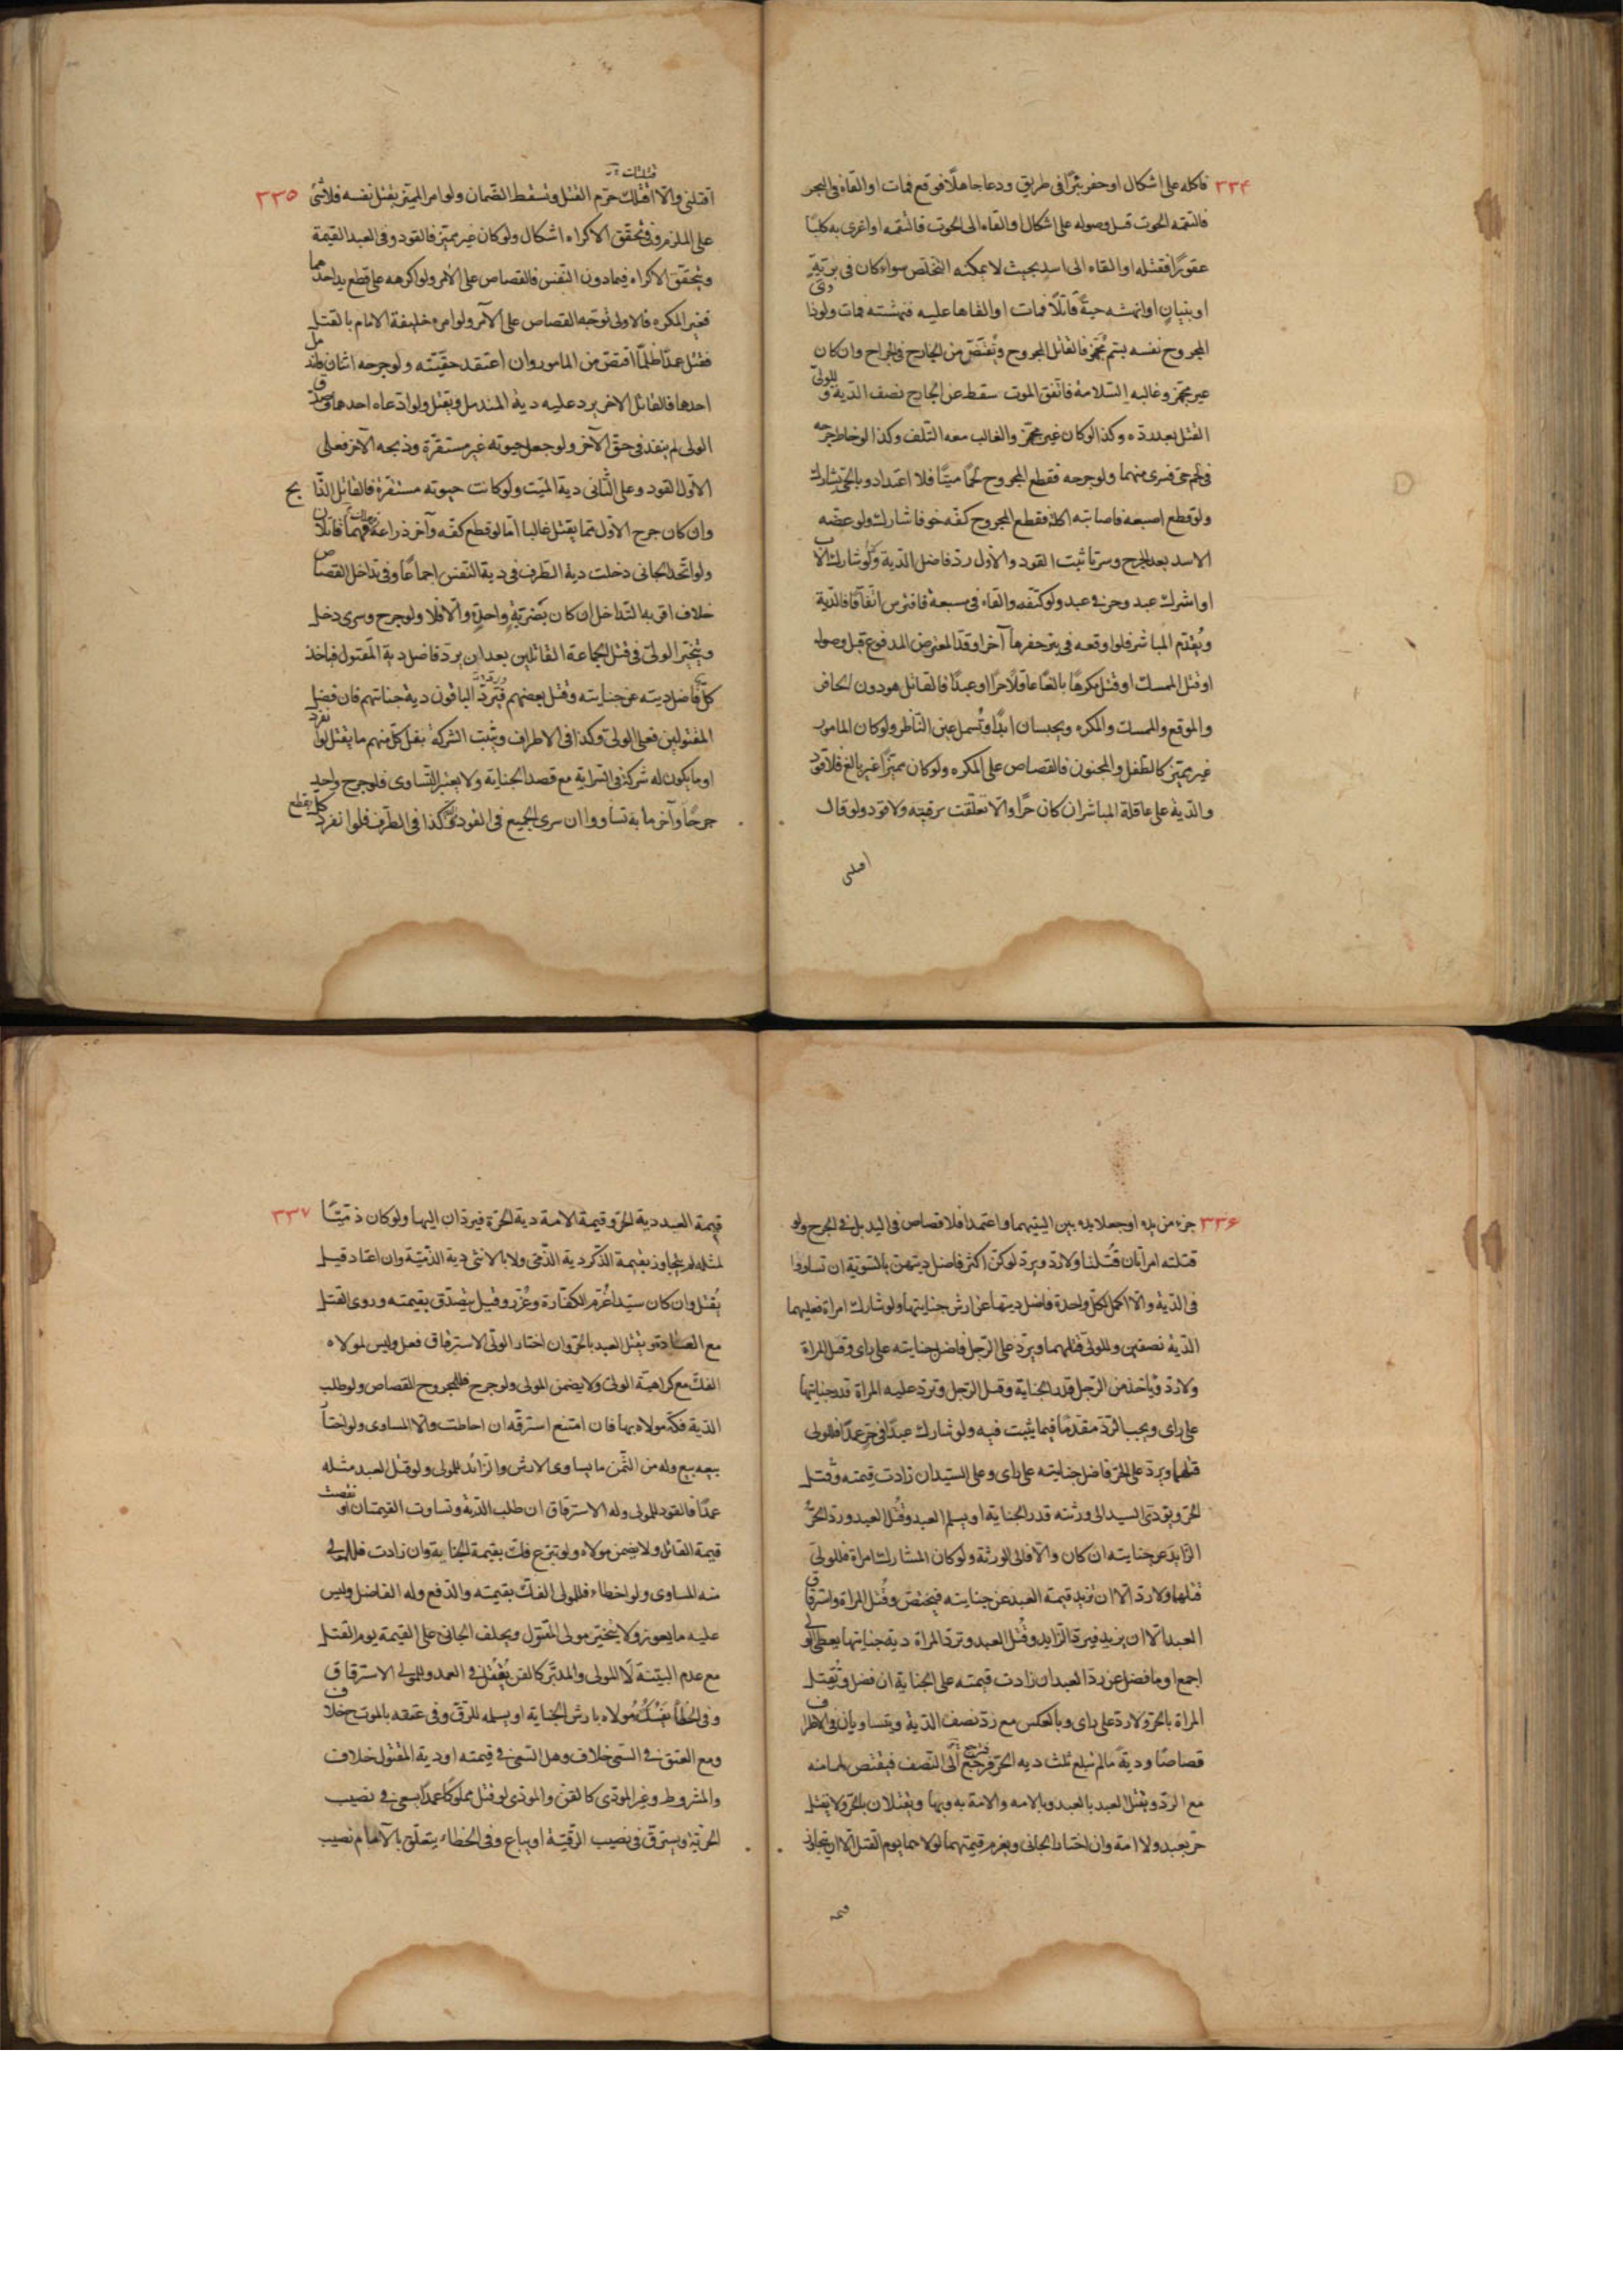 ٣٣۴ فاكله على اشكال اوحفر بئرًا فى طريق ودعا جاهلًا فوقع فمات او القاه فى البحر
فالتقمه الحوت قبل وصوله على اشكال او القاه الى الحوت فالتقمه او اغرى به كلبًا
عقورًا فقتله او القاه الى اسد بحيث لا يمكنه التخلص سواء كان فى برّيّةٍ
او بنيانٍ او انهشه حيةً قاتلًا فمات او القاها عليه فنهشته فمات ولو ذا
وى
المجروح نفسه بسم مُجَهّز فالقاتل المجروح ويُقتَصّ من الجارح فى الجراح وان كان
غير مجهّز وغالبه السّلامة فاتّفق الموت سقط عن الجارح نصف الدّية و
للولىّ
القتل بعد ردّه وكذا لو كان غير مجهّز والغالب معه التّلف وكذا لو خاط جرحه
فى لحم حىّ فسرى منهما ولو جرحه فقطع المجروح لحمًا ميتًا فلا اعتداد وبالحىّ يشارك
ولو قطع اصبعه فاصابته اكلة فقطع المجروح كفّه خوفا شارك ولو عضّه
الاسد بعد الجرح وسرتا ثبت القود والاول ردّ فاضل الدّية وكذا لو شارك الا
ب
او اشرك عبد وحر فى عبد ولو كتّفه والقاه فى مسبعة فافترس اتّفاقًا فالدّية
ويُقدّم المباشر فلو اوقعه فى بئر حفرها آخر او قدّ المعترض المدفوع قبل وصوله
او قتل الممسك او قتل مكرهًا بالغًا عاقلًا حرًا او عبدًا فالقاتل هو دون الحافر
والموقع والممسك والمكره ويحبسان ابدًا وتُسمل عين النّاظر ولو كان المامور
غير مميّز كالطّفل والمجنون فالقصاص على المكره ولو كان مميّزًا غير بالغ فلا قود
والدّية على عاقلة المباشر ان كان حرًّا والّا تعلّقت برقبته ولا قود ولو قال
اقتلنى
٣٣٥ اقتلنى والّا اقتلك حرّم القتل وتسقط الضّمان ولو امر المميّز بقتل نفسه فلا شئ
على الملزم وفى تحقّق الاكراه اشكال ولو كان غير مميّز فالقود وفى العبد القيمة
ويتحقّق الاكراه فيما دون النّفس فالقصاص على الآمر ولو اكرهه على قطع يد احد
هما
فتخير المكره فالاولى توجّه القصاص على الآمر ولو امره خليفة الامام بالقتل
فقتل عمدًا ظلمًا اقتصّ من المامور وان اعتقد حقيّته ولو جرحه اثنان فاند
مل
احدها فالقاتل الاخر يرد عليه دية المندمل ويقتل ولو ادّعاه احدهما وصدّ
ق
الولى لم ينفذ فى حقّ الآخر ولو جعل حيوته غير مستقرّة وذبحه الآخر فعلى
الاوّل القود وعلى الثّانى دية الميّت ولو كانت حيوته مستقرّة فالقاتل الذّا بح
وان كان جرح الاوّل ممّا يقتل غالبا امّا لو قطع كفّه وآخر ذراعه فهما قاتلا
ن
ولو اتّحد الجانى دخلت دية الطّرف فى دية النّفس اجماعًا وفى تداخل القصا
ص
خلاف اقربه التّداخل ان كان بضربةٍ واحدةٍ والّا فلا ولو جرح وسرى دخل
ويتخيّر الولىّ فى قتل الجماعة القاتلين بعد ان يردّ فاضل دية المقتول فياخذ
كلّ فاضل ديته عن جنايته وقتل بعضهم فيردّ الباقون دية جنايتهم فان فضل
المقتولين فعلى الولى وكذا فى الاطراف ويثبت الشركة بفعل كلّ منهم ما يقتل لو ا
نفرد
او ما يكون له شركة فى السّراية مع قصد الجناية ولا يعتبر التّساوى فلو جرح واحد
جرحًا وآخر مأية تساووا ان سرى الجميع فى القود وكذا فى الطّرف فلو انفرد كلّ بقطع
٣٣۶ جزء من يده او جعلا يده بين اليتيهما واعتمدا فلا قصاص فى اليد بل فى الجرح ولو
قتلته امرأتان قُتلتا ولا ردّ ويردّ لو كنّ اكثر فاضل ديتهنّ بالسّويّة ان تساووا
فى الدّية والّا اكمل لكلّ واحدة فاضل ديتها عن ارش جنايتها ولو شارك امراة فعليهما
الدّية نصفين وللولىّ قتلهما ويردّ على الرّجل فاضل جنايته على راى وقتل المراة
ولا ردّ وياخذ من الرّجل قدر الجناية وقتل الرّجل وتردّ عليه المراة قدر جنايتها
على راى ويجب الرّدّ مقدّمًا فيما يثبت فيه ولو شارك عبدًا فى حرّ عمدًا فللولى
قتلهما ويردّ على الحرّ فاضل جنايته على راى وعلى السّيد ان زادت قيمته وقتل
الحرّ ويؤدّى السيد الى ورثته قدر الجناية او يسلم العبد وقُتل العبد وردّ الحرّ
الزّايد عن جنايته ان كان والّا فالى الورثة ولو كان المشارك امراة فللولىّ
قتلهما ولا ردّ الّا ان تزيد قيمته العبد عن جنايته فيختصّ وقُتل المراة واسترقا
ق
العبد الّا ان يزيد فيردّ الزّايد وقُتل العبد وتردّ المراة دية جنايتها يعطى المو
لى
اجمع او ما فضل عن ردّ العبد ان زادت قيمته على الجناية ان فضل وتُقتل
المراة بالحرّ ولا ردّ على راى وبالعكس مع ردّ نصف الدّية ويتساويان فى الاطرا
ف
قصاصًا وديةً مالم تبلغ ثلث دية الحرّ فترجع الى النّصف فيقتصّ لها منه
مع الردّ ويقتل العبد بالعبد وبالامه والامة به وبها ويقتلان بالحرّ ولا يقتل
حرّ بعبد ولا امة وان اختار الجانى ويغرم قيمتهما لمولاهما يوم القتل الّا ان يتجاوز
قيمة
٣٣٧ قيمة العبد دية الحرّ وقيمة الامة دية الحرّة فيردّان اليها ولو كان ذمّيًا
لمثله لم يتجاوز بقيمة الذّكر دية الذّمّى ولا بالانثى دية الذّميّة وان اعتاد قيل
يُقتل وان كان سيّدا غُرّم للكفّارة وعُزّر وقيل يتصدّق بقيمته وروى القتل
مع العادة ويقتل العبد بالحرّ وان اختار الولىّ الاسترقاق فعل وليس لمولاه
الفكّ مع كراهية الولىّ ولا يضمن المولى ولو جرح فللمجروح القصاص ولو طلب
الدّية فكّه مولاه بها فان امتنع استرقّه ان احاطت والّا المساوى ولو اختا
ر
بيعه بيع وله من الثّمن ما يساوى الارش والزّائد للمولى ولو قتل العبد مثله
عمدًا فالقود للمولى وله الاسترقاق ان طلب الدّية وتساوت القيمتان او
نقصت
قيمة القاتل ولا يضمن مولاه ولو تبرّع فكّ بقيمة الجناية وان زادت فللمولى
منه المساوى ولو اخطاء فللمولى الفكّ بقيمته والدّفع وله الفاضل وليس
عليه ما يعوز ولا يتخيّر مولى المقتول ويحلف الجانى على القيمة يوم القتل
مع عدم البيّنة لا للمولى والمدبّر كالقن يُقتل فى العمد وللمولى الاسترقاق
وفى الخطأ يفكّه مولاه بارش الجناية او يسلمه للرّقّ وفى عتقه بالموت خلا
ف
ومع العتق فى السّعى خلاف وهل السّعى فى قيمته او دية المقتول خلاف
والمشروط وغير المودّى كالقنّ والمودّى لو قتل مملوكًا عمدًا يسعى فى نصيب
الحرّيّة ويسترقّ فى نصيب الرّقيّة او يباع وفى الخطاء يتعلّق بالامام نصيب